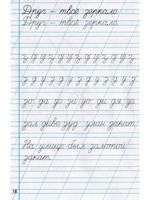 Друг – твоё зеркало.
Друг – твоё зеркало.
з з з з з з з з з з з
з з з з з з з з з з з
зо да уз зи уз ди дя уз
зал диво зуд улан закат
На улице был золотой
закат.
18